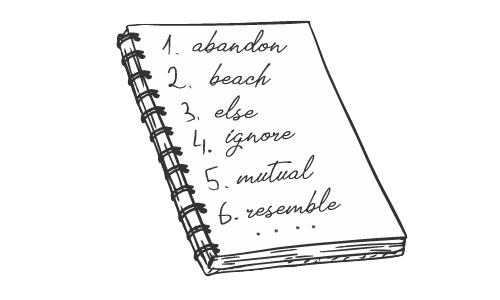 1. abandon
2. beach
3. else
4. ignore
5. mutual
6. resemble
. . . .